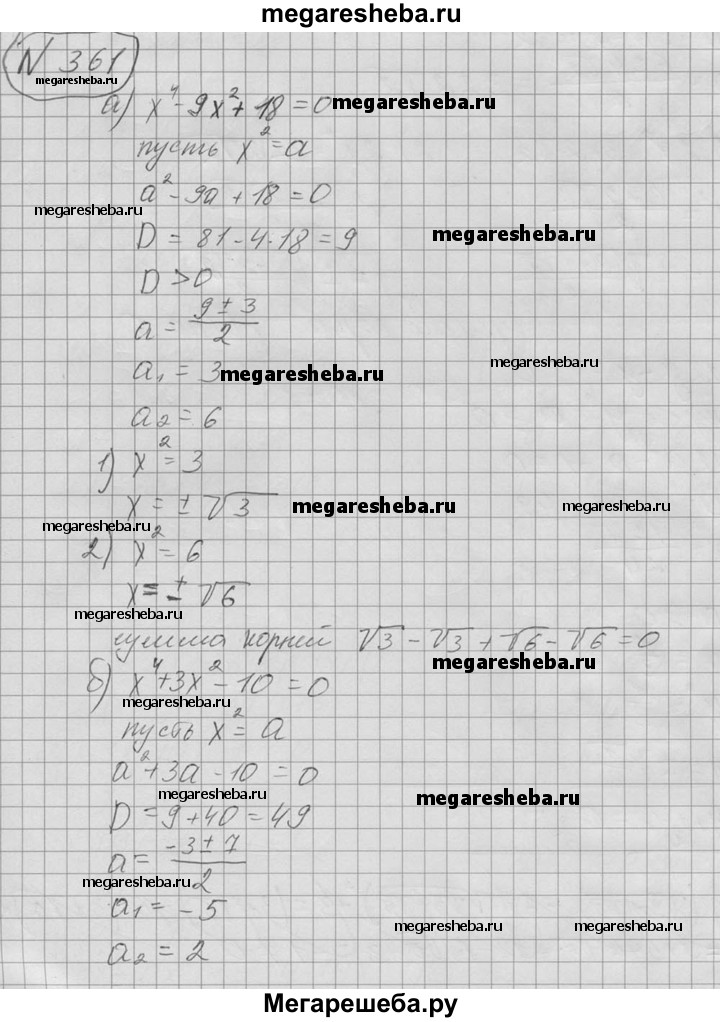 megaresheba.ru
N 361
megaresheba.ru
а) x⁴ - 9x² + 18 = 0 megaresheba.ru
пусть x² = a
a² - 9a + 18 = 0
megaresheba.ru
D = 81 - 4·18 = 9 megaresheba.ru
D > 0
a = (9 ± 3)/2
megaresheba.ru
a₁ = 3 megaresheba.ru
a₂ = 6
1) x² = 3
x = ± √3 megaresheba.ru megaresheba.ru
megaresheba.ru
2) x² = 6
x = ± √6
megaresheba.ru
сумма корней √3 - √3 + √6 - √6 = 0
megaresheba.ru
б) x⁴ + 3x² - 10 = 0
megaresheba.ru
пусть x² = a
a² + 3a - 10 = 0
megaresheba.ru megaresheba.ru
D = 9 + 40 = 49
a = (-3 ± 7)/2
megaresheba.ru
a₁ = -5
megaresheba.ru megaresheba.ru
a₂ = 2
Мегарешеба.ру